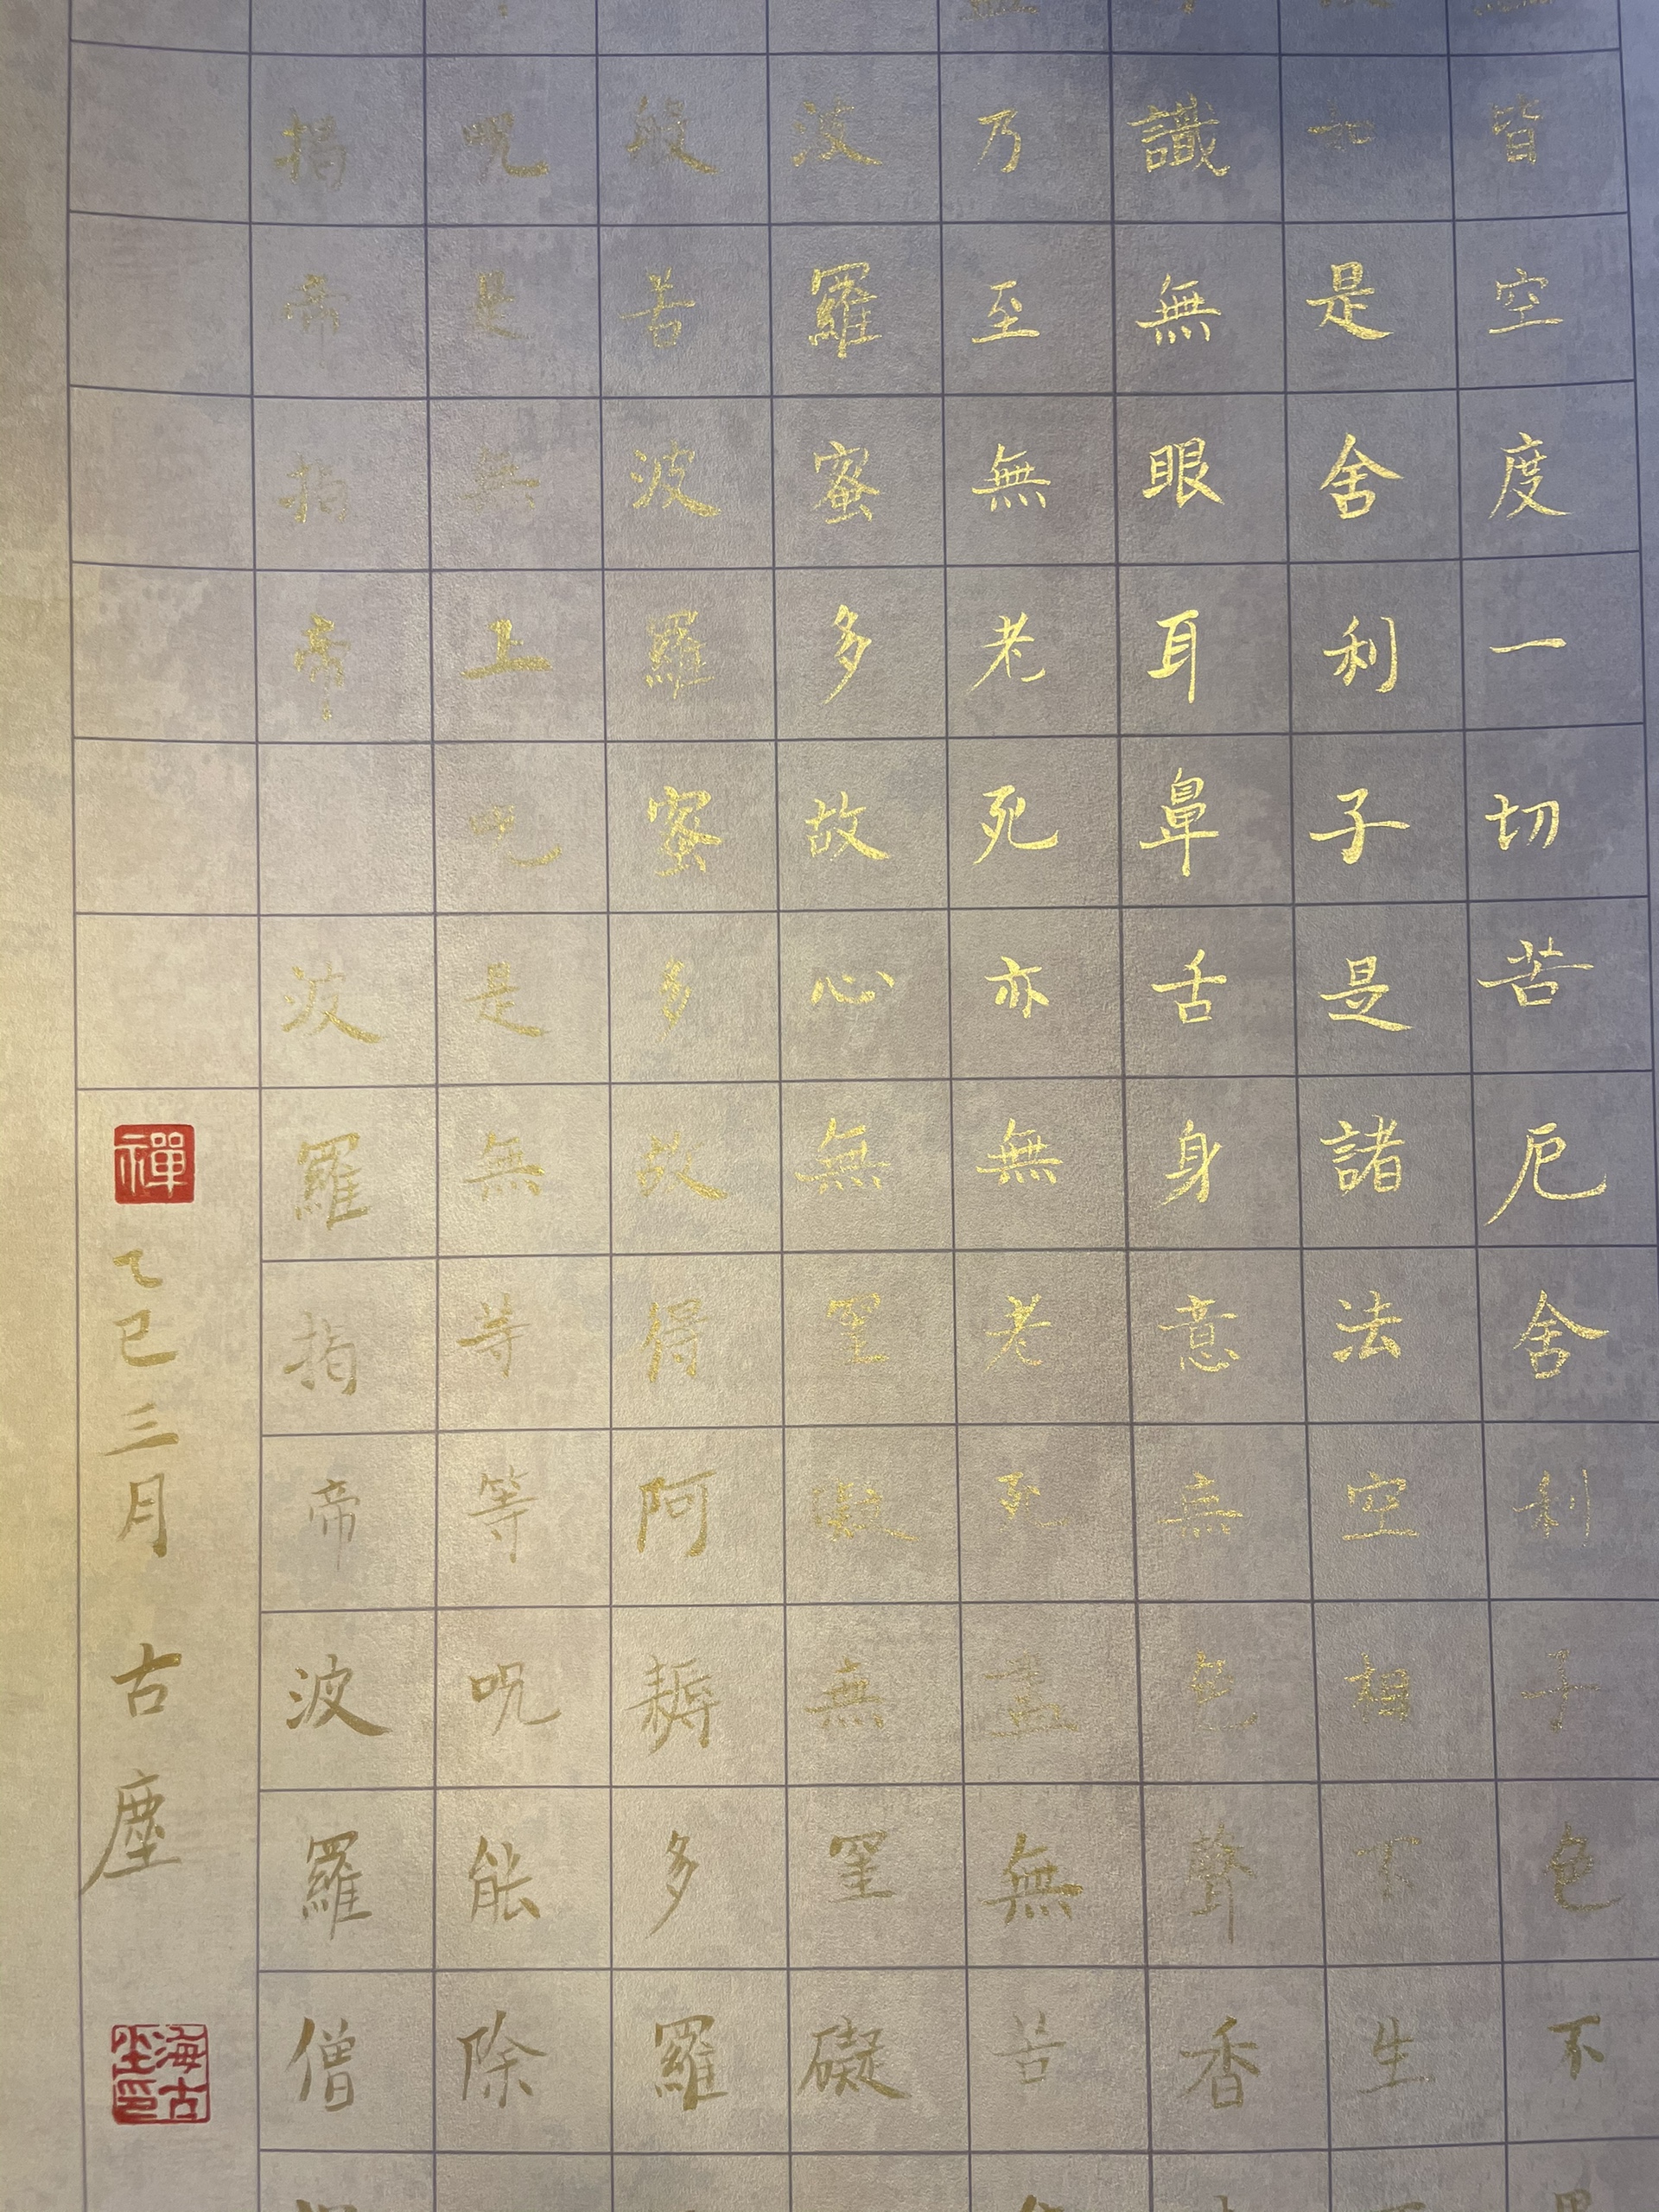 皆空度一切苦厄舍利子色不
如是舍利子是諸法空相不生
識無眼耳鼻舌身意無色聲香
乃至無老死亦無老死盡無苦
波羅蜜多故心無罣礙無罣礙
般若波羅蜜多故得阿耨多羅
呪是無上呪是無等等呪能除
揭帝揭帝 波羅揭帝波羅僧
禪
乙巳三月 古塵
海古尘印